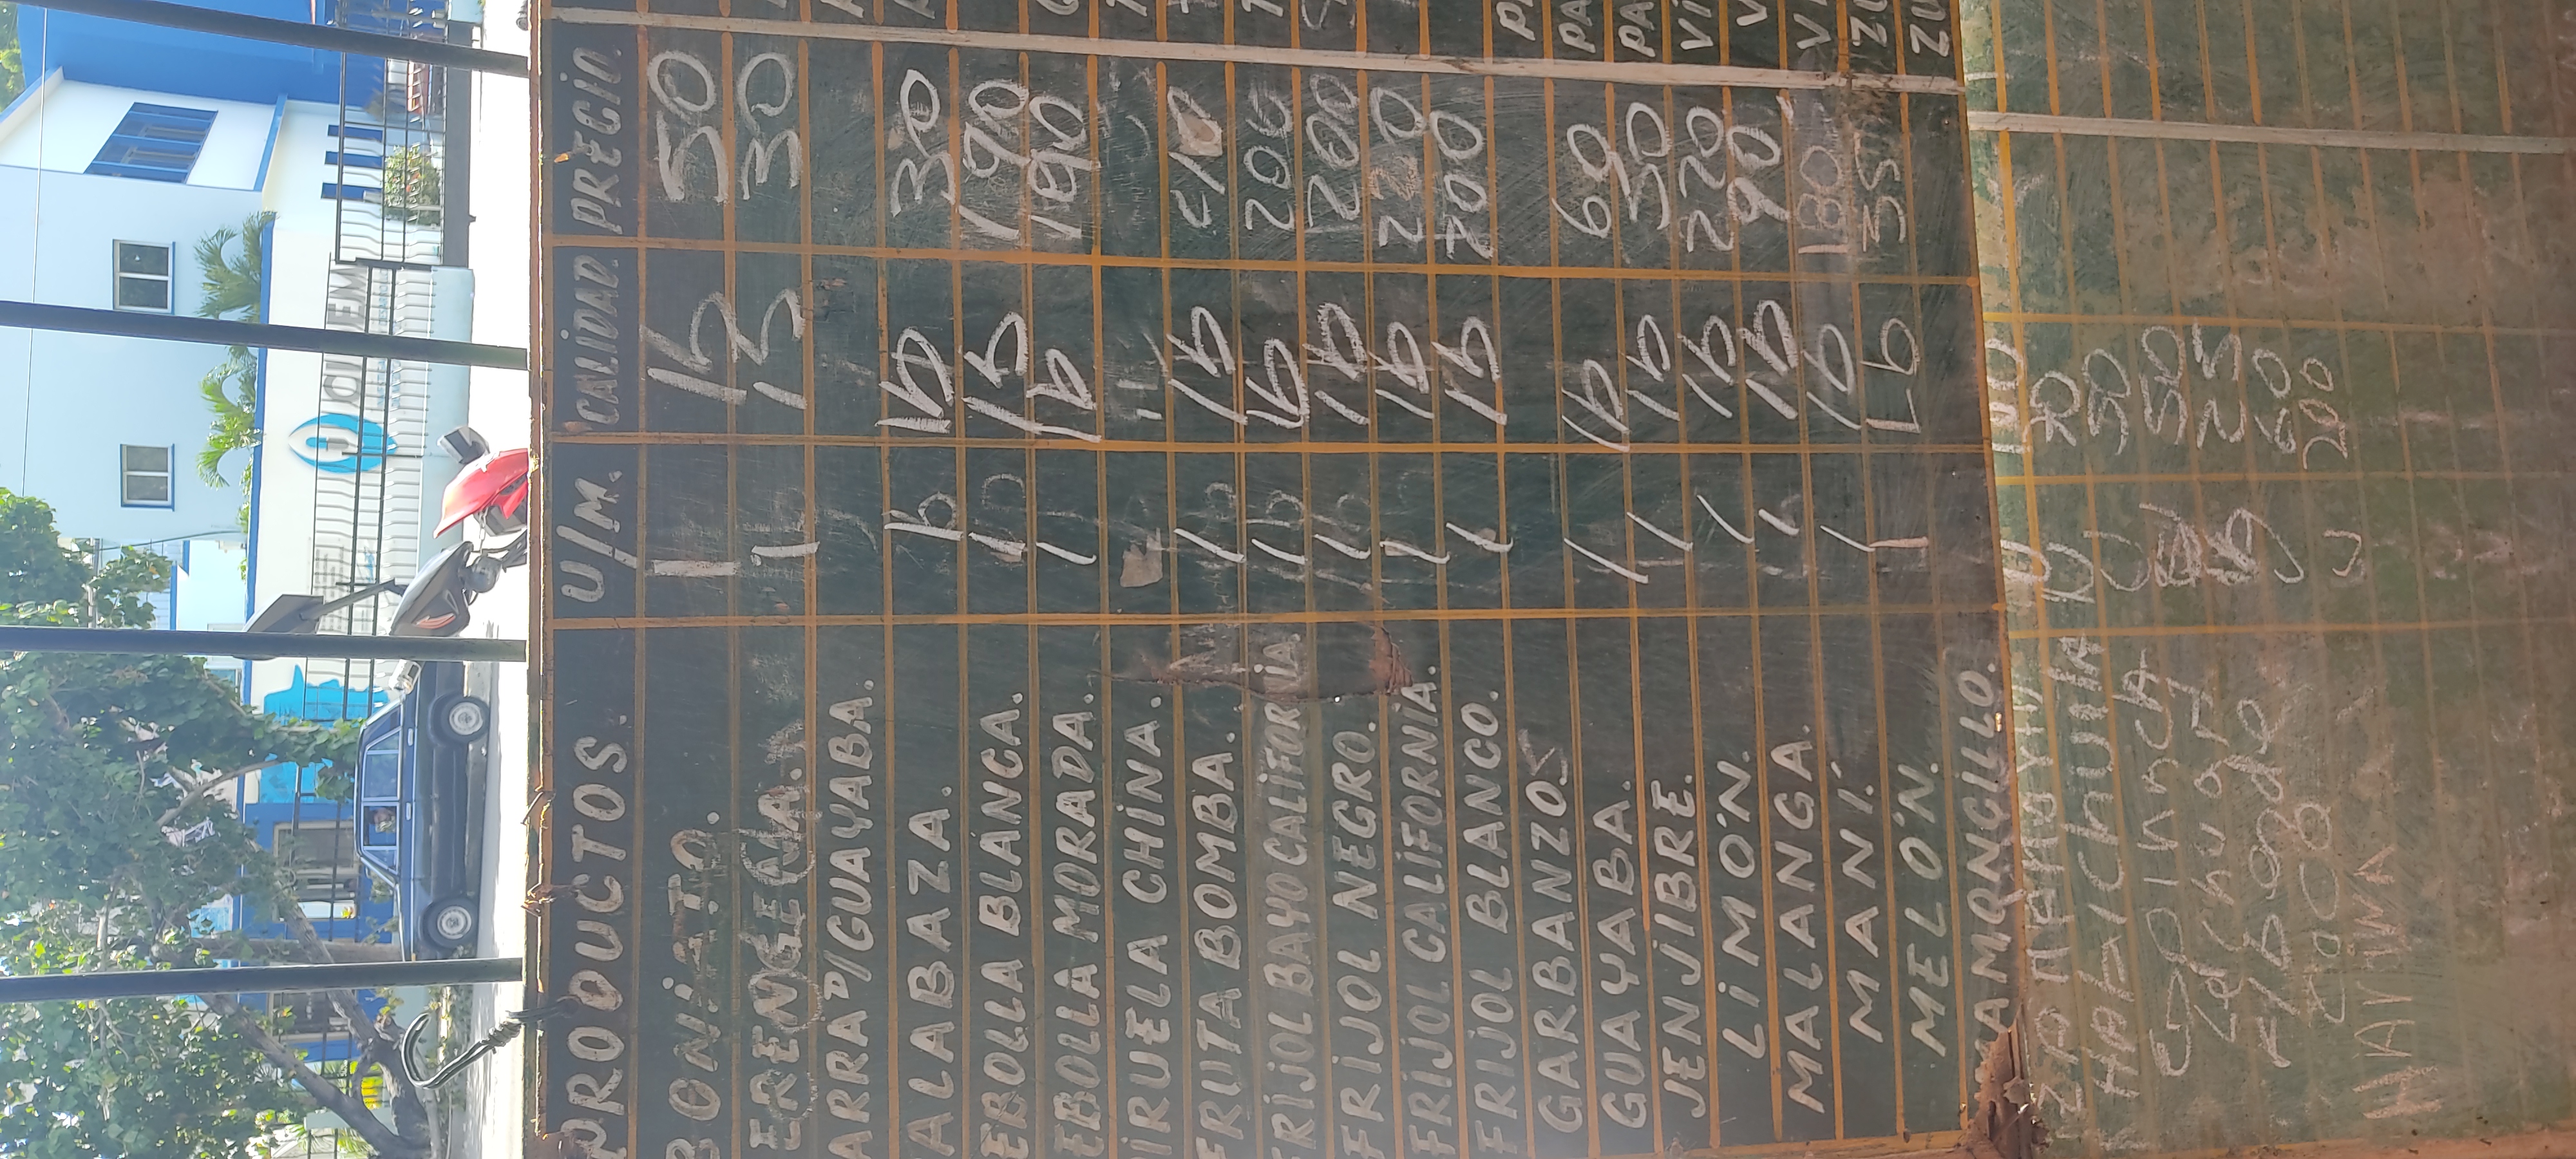 PRODUCTOS. U/M. CALIDAD. PRECIO.
BONIATO. 1 lb 50
ERENGENA. 1 lb 30
ARRA D/GUAYABA.
ALABAZA. 1 lb 30
EBOLLA BLANCA. 1 lb 190
EBOLLA MORADA. 1 lb 190
IRUELA CHINA.
FRUTA BOMBA. 1 lb
FRIJOL BAYO CALIFORNIA. 1 lb 200
FRIJOL NEGRO. 1 lb 200
FRIJOL CALIFORNIA. 1 lb 220
FRIJOL BLANCO. 1 lb 200
GARBANZOS
GUAYABA. 1 lb 60
JENJIBRE. 1 lb 50
LIMÓN. 1 lb 220
MALANGA. 1 lb 90
MANÍ. 1 lb 180
MELÓN. 1 Lb 35
MAMONCILLO.
HABICHUELA U 50
ESPINACA 50
Lechuga 25
60
COCO U 200
HARINA
PA
PA
VI
V
VI
ZU
ZU